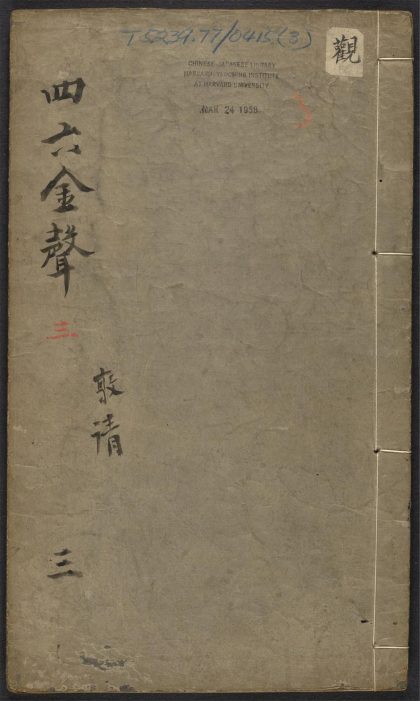 T5239.77/0415(3)
CHINESE-JAPANESE LIBRARY
HARVARD-YENCHING INSTITUTE
AT HARVARD UNIVERSITY
MAR 24 1938
觀
四六金聲
三
敦請
三